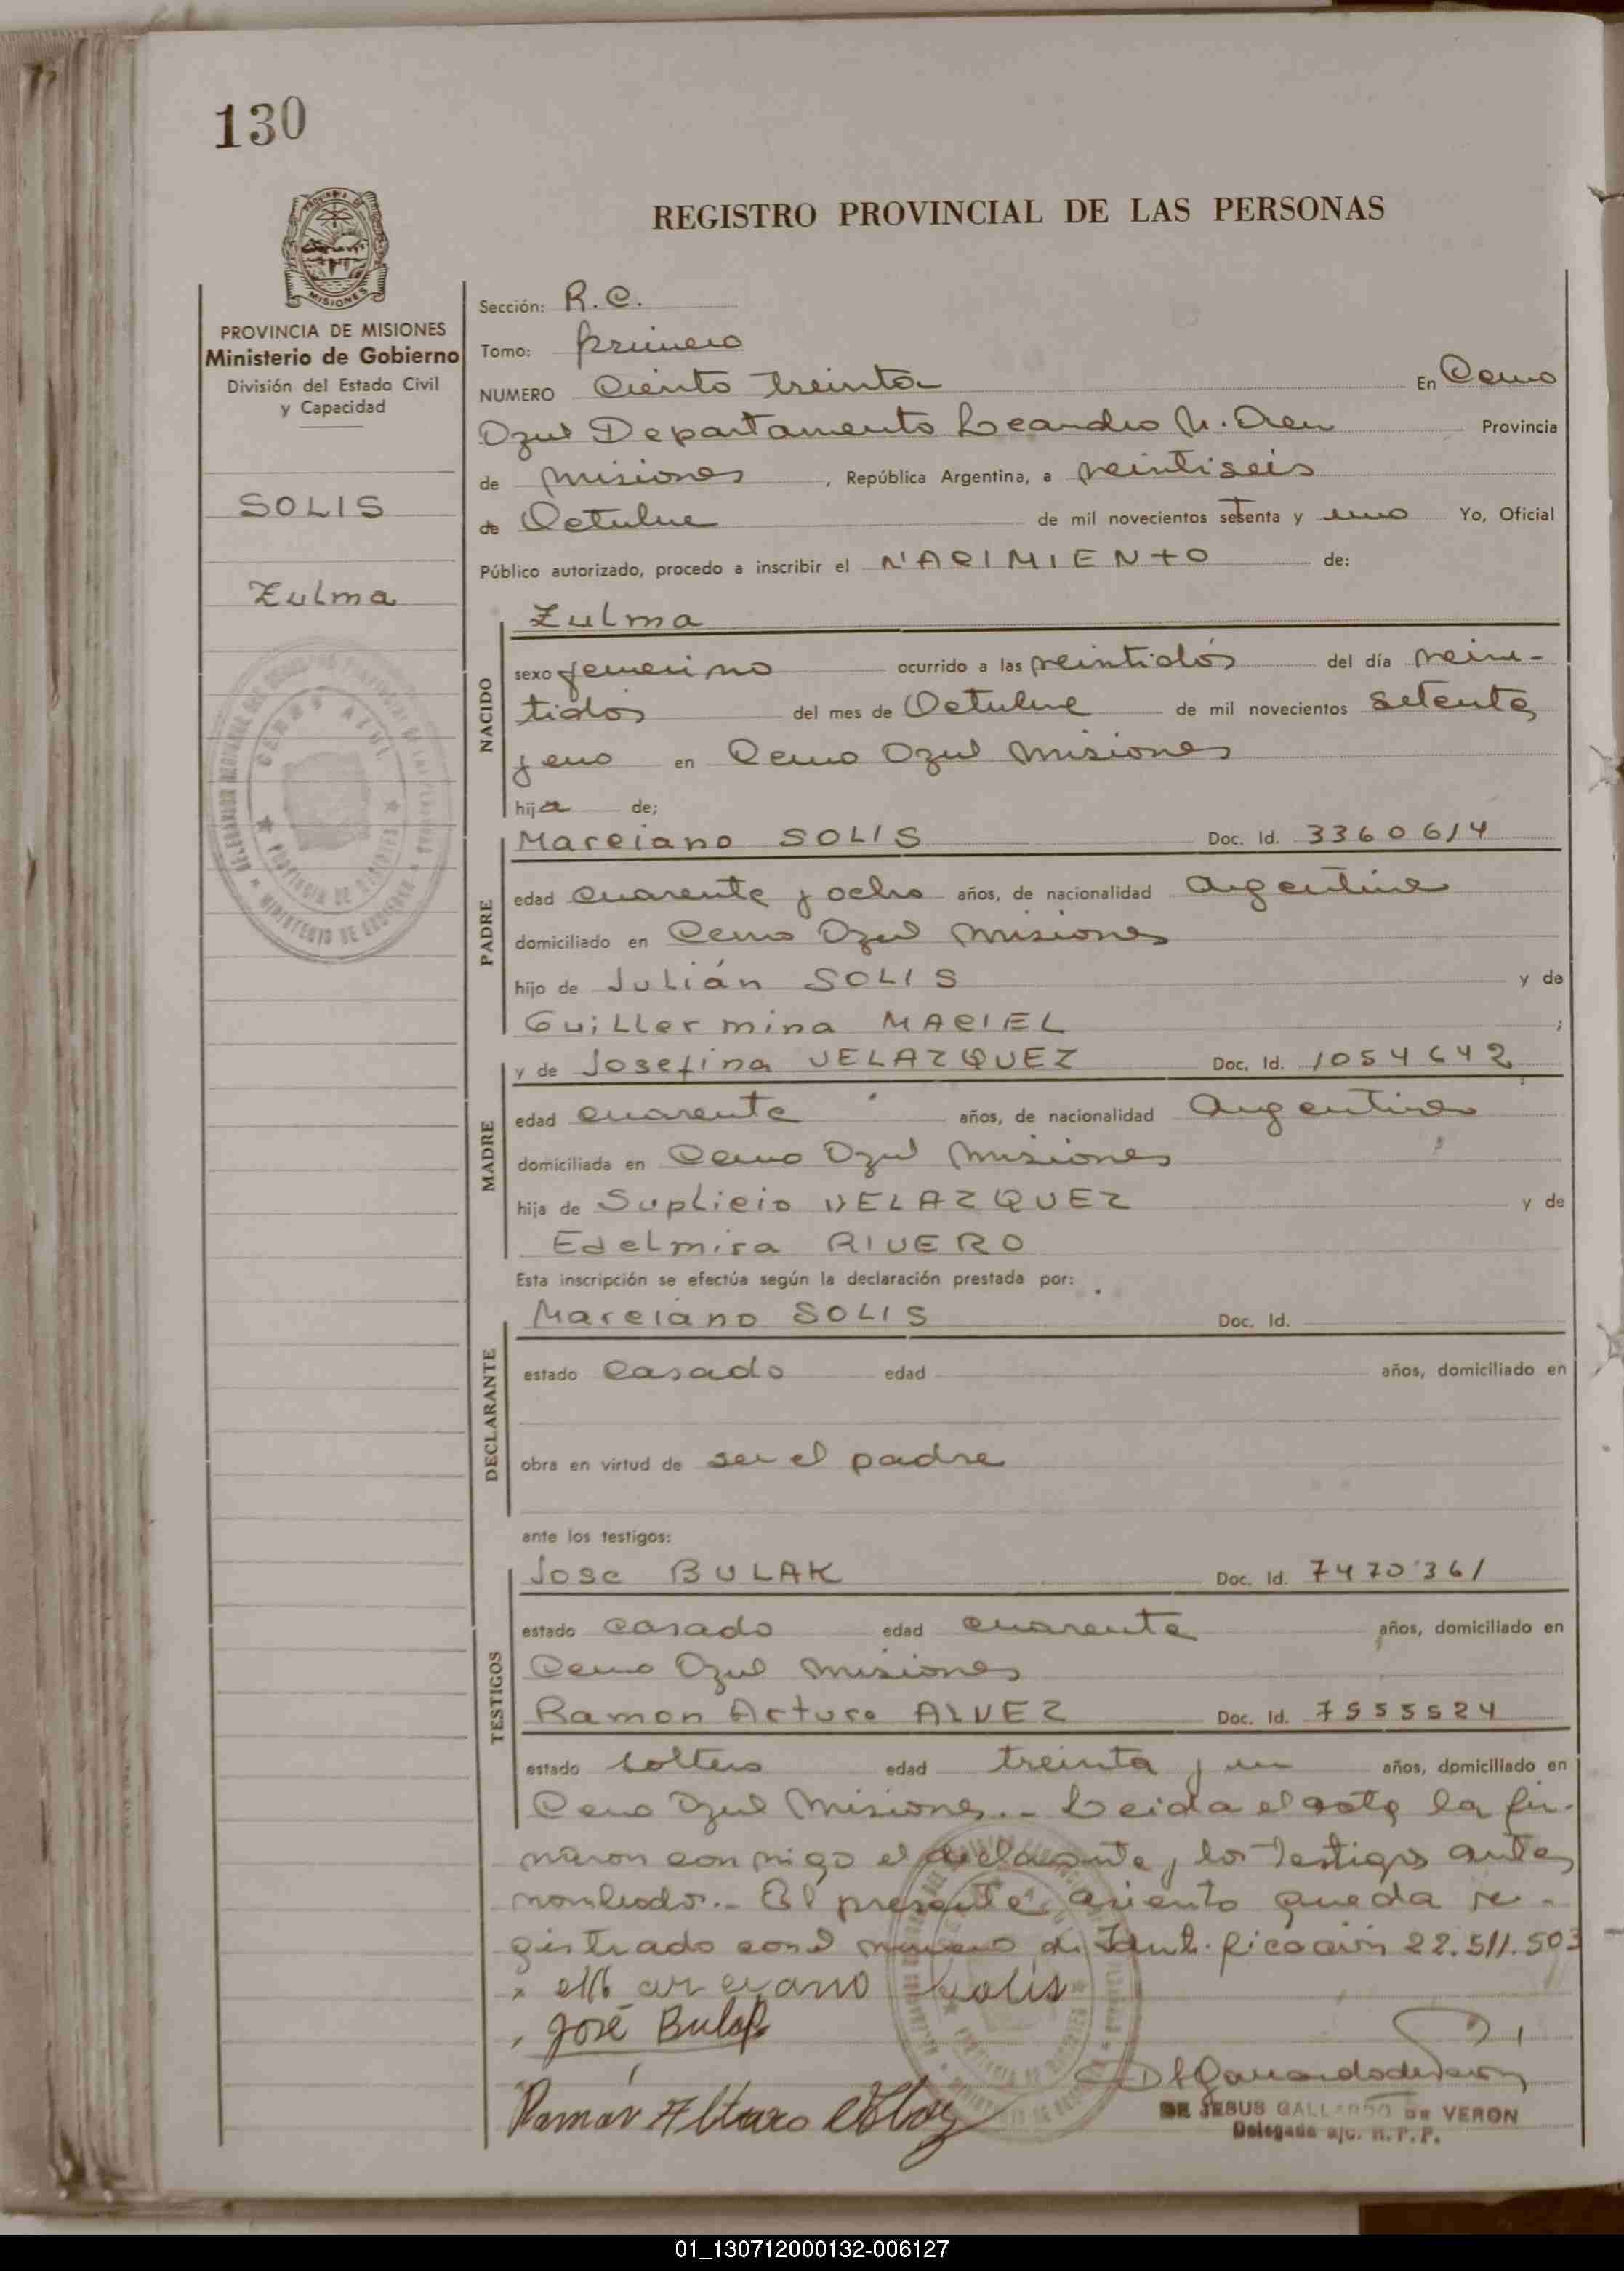 130
REGISTRO PROVINCIAL DE LAS PERSONAS
MISIONES
PROVINCIA DE MISIONES
Ministerio de Gobierno
División del Estado Civil
y Capacidad
SOLIS
Zulma
CERRO AZUL
Sección: R.C.
Tomo: primero
NUMERO Ciento treinta En Cerro
Azul Departamento Leandro N. Alem Provincia
de Misiones, República Argentina, a veintiseis
de Octubre de mil novecientos setenta y uno Yo, Oficial
Público autorizado, procedo a inscribir el NACIMIENTO de:
NACIDO
Zulma
sexo femenino ocurrido a las veintidós del día vein-
tidos del mes de Octubre de mil novecientos setenta
y uno en Cerro Azul Misiones
hija de;
PADRE
Marciano SOLIS Doc. Id. 3360614
edad cuarenta y ocho años, de nacionalidad argentina
domiciliado en Cerro Azul Misiones
hijo de Julián SOLIS y de
Guillermina MACIEL ;
MADRE
y de Josefina VELAZQUEZ Doc. Id. 1054642
edad cuarenta años, de nacionalidad argentina
domiciliada en Cerro Azul Misiones
hija de Suplicio VELAZQUEZ y de
Edelmira RIVERO
Esta inscripción se efectúa según la declaración prestada por:
DECLARANTE
Marciano SOLIS Doc. Id.
estado casado edad años, domiciliado en
obra en virtud de ser el padre
ante los testigos:
TESTIGOS
Jose BULAK Doc. Id. 7470361
estado casado edad cuarenta años, domiciliado en
Cerro Azul Misiones
Ramon Arturo ALVEZ Doc. Id. 7555524
estado soltero edad treinta y un años, domiciliado en
Cerro Azul Misiones.- Leida el acta la fir-
maron conmigo el declarante y los testigos antes
nombrados.- El presente asiento queda re-
gistrado con el numero de Identificación 22.511.503
x Marciano Solis
José Bulak
Ramón
DE JESUS GALLARDO DE VERON
Delegada a/c. R.P.P.
01_130712000132-006127